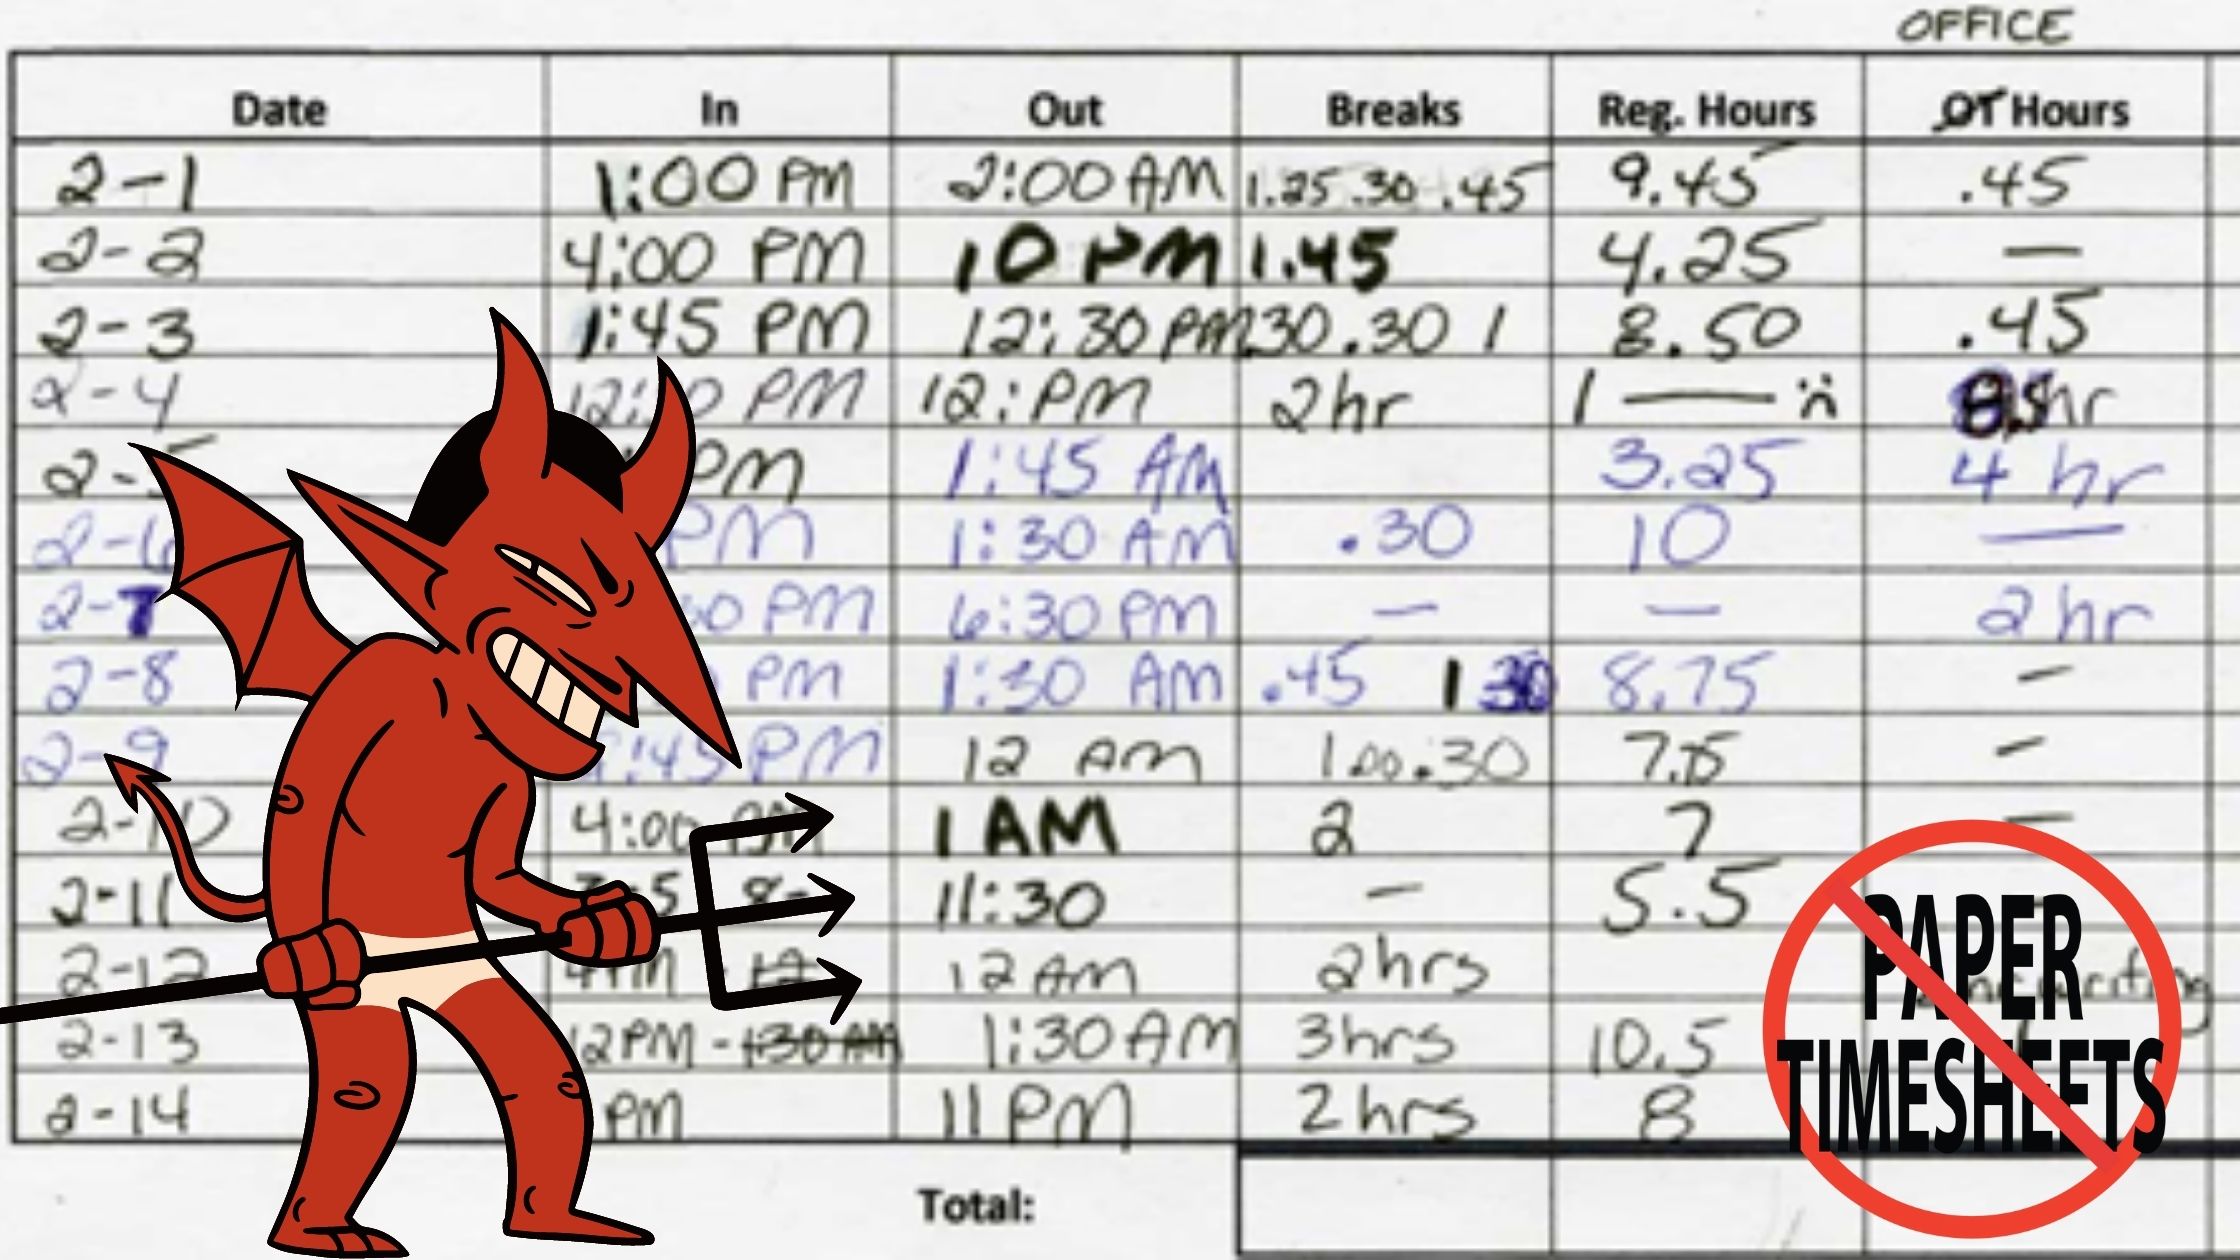 OFFICE
Date In Out Breaks Reg. Hours OT Hours
2-1 1:00 PM 2:00 AM 1.25 .30 .45 9.45 .45
2-2 4:00 PM 10 PM 1.45 4.25 —
2-3 1:45 PM 12:30 PM .30 .30 1 8.50 .45
2-4 PM 12: PM 2hr 1 — hr
2- PM 1:45 AM 3.25 4 hr
PM 1:30 AM .30 10 —
2-7 PM 6:30 PM — — 2 hr
2-8 PM 1:30 AM .45 1 30 8.75 -
2-9 :45 PM 12 AM 1 00 .30 -
2-10 4:00 1 AM 2 7 —
2-11 11:30 - 5.5
2-12 12 AM 2hrs
2-13 12PM - 1:30 AM 1:30 AM 3hrs 10.5
2-14 PM 11 PM 2hrs 8
Total:
PAPER
TIMESHEETS